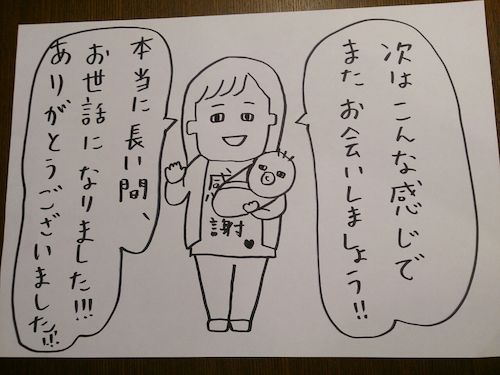 次はこんな感じで
またお会いしましょう!!
感
謝
本当に長い間、
お世話になりました!!!
ありがとうございました!!!